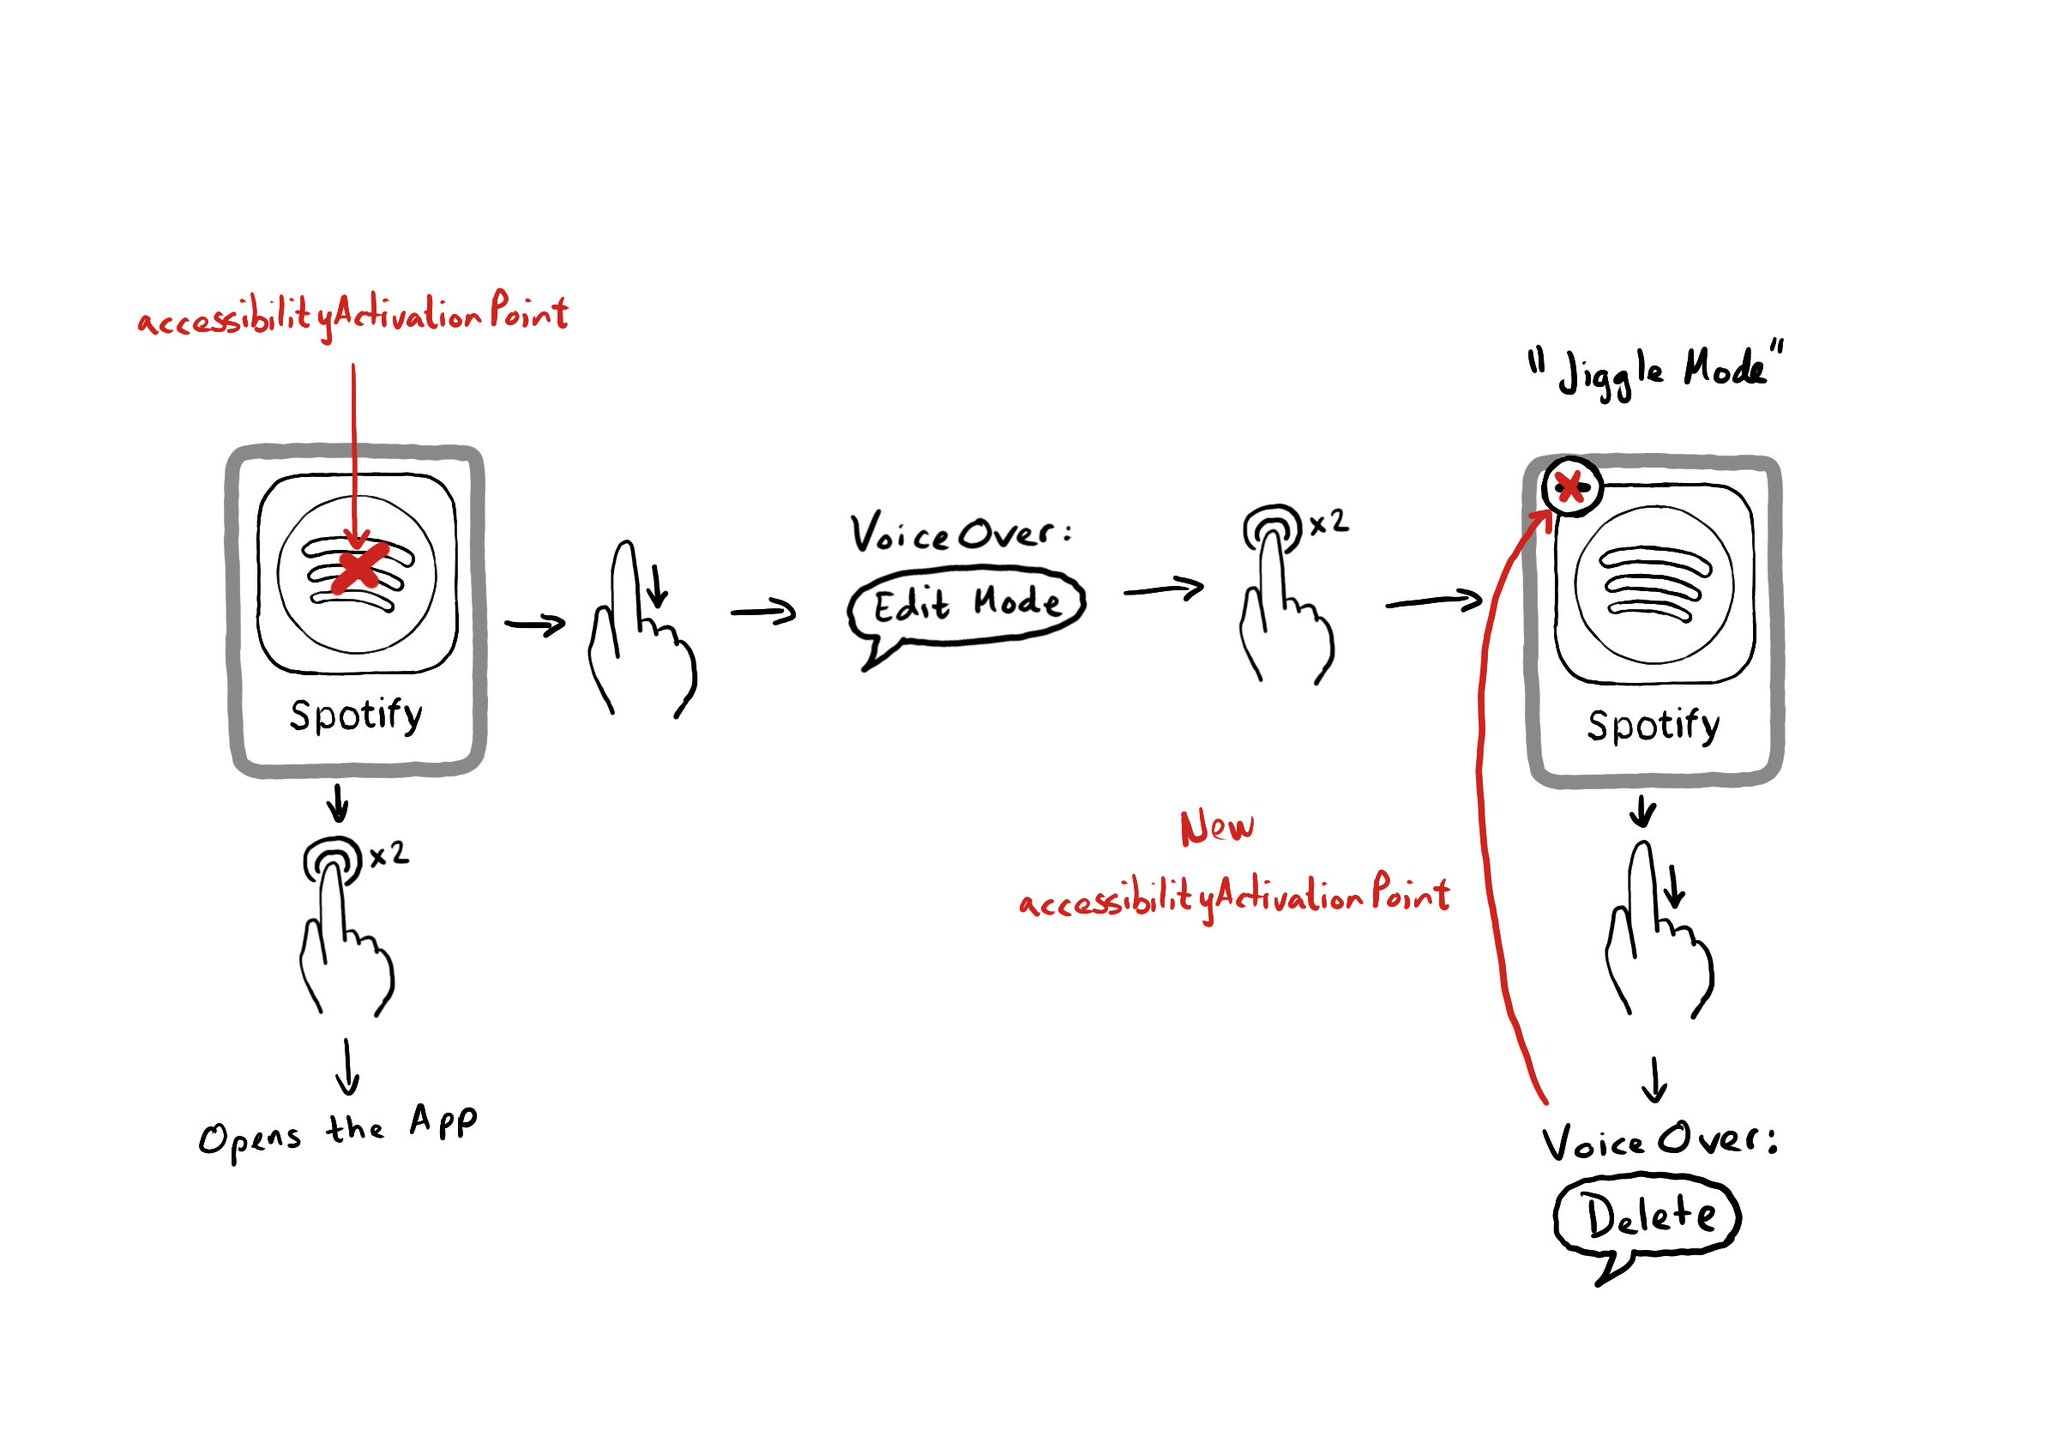 accessibilityActivationPoint
Spotify
x2
Opens the App
VoiceOver:
Edit Mode
x2
"Jiggle Mode"
Spotify
New
accessibilityActivationPoint
VoiceOver:
Delete